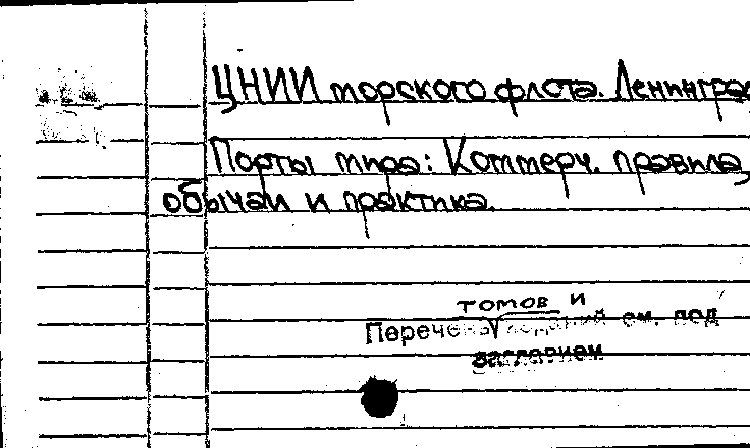 ЦНИИ морского флота. Ленинград
Порты мира: Коммерч. правила,
обычаи и практика.
томов и
Перечень изданий см. под
заглавием